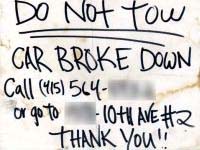 DO NOT TOW
CAR BROKE DOWN
Call (415) 564-
or go to -10TH AVE #2
THANK YOU!!